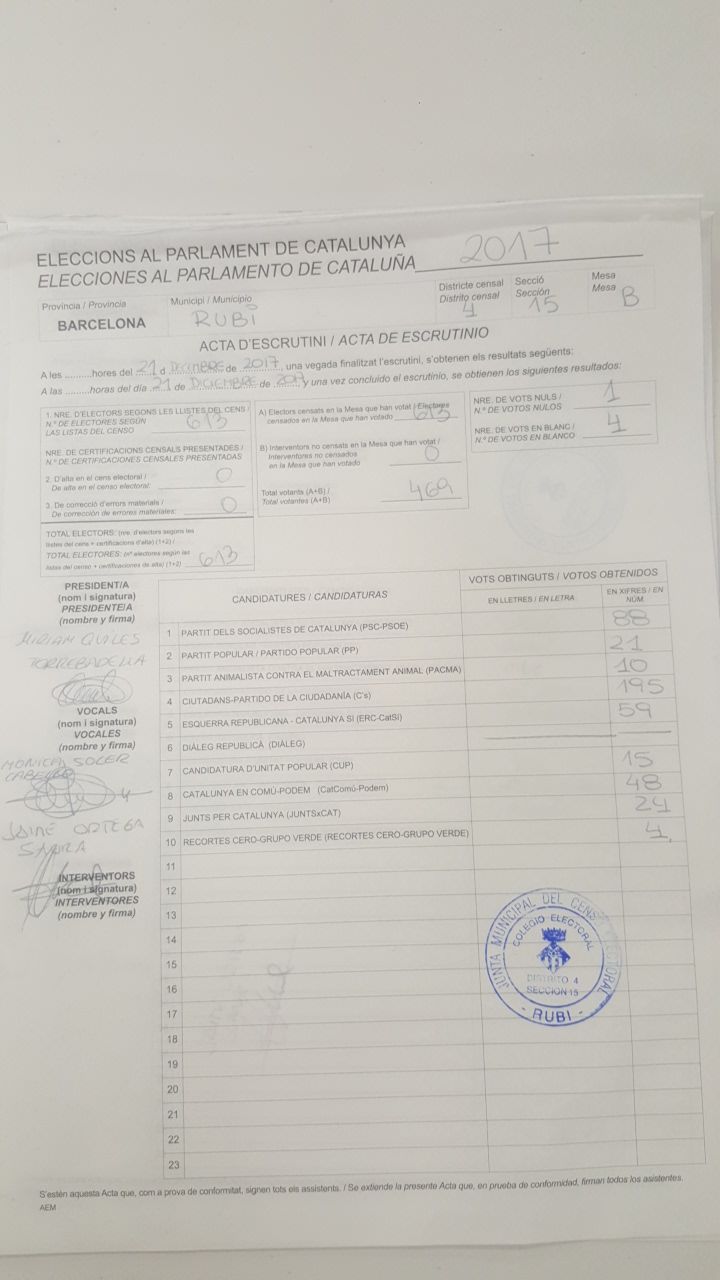 ELECCIONS AL PARLAMENT DE CATALUNYA
ELECCIONES AL PARLAMENTO DE CATALUÑA 2017
Provincia / Provincia
BARCELONA
Municipi / Municipio
RUBÍ
Districte censal
Distrito censal
4
Secció
Sección
15
Mesa
Mesa
B
ACTA D'ESCRUTINI / ACTA DE ESCRUTINIO
A les .........hores del 21 d DECEMBRE de 2017, una vegada finalitzat l'escrutini, s'obtenen els resultats següents:
A las .........horas del día 21 de DICIEMBRE de 2017 y una vez concluido el escrutinio, se obtienen los siguientes resultados:
1. NRE. D'ELECTORS SEGONS LES LLISTES DEL CENS /
N.º DE ELECTORES SEGÚN
LAS LISTAS DEL CENSO 613
NRE. DE CERTIFICACIONS CENSALS PRESENTADES /
N.º DE CERTIFICACIONES CENSALES PRESENTADAS
2. D'alta en el cens electoral /
De alta en el censo electoral: 0
3. De correcció d'errors materials /
De corrección de errores materiales: 0
TOTAL ELECTORS: (nre. d'electors segons les
llistes del cens + certificacions d'alta) (1+2) /
TOTAL ELECTORES: (nº electores según las
listas del censo + certificaciones de alta) (1+2) 613
A) Electors censats en la Mesa que han votat / Electores
censados en la Mesa que han votado 613
B) Interventors no censats en la Mesa que han votat /
Interventores no censados
en la Mesa que han votado 0
Total votants (A+B) /
Total votantes (A+B) 469
NRE. DE VOTS NULS /
N.º DE VOTOS NULOS 1
NRE. DE VOTS EN BLANC /
N.º DE VOTOS EN BLANCO 4
PRESIDENT/A
(nom i signatura)
PRESIDENTE/A
(nombre y firma)
MIRIAM QUILES
TORREBADELLA
VOCALS
(nom i signatura)
VOCALES
(nombre y firma)
MONICA SOLER
CABELLO
JAIME ORTEGA
INTERVENTORS
(nom i signatura)
INTERVENTORES
(nombre y firma)
CANDIDATURES / CANDIDATURAS
VOTS OBTINGUTS / VOTOS OBTENIDOS
EN LLETRES / EN LETRA
EN XIFRES / EN
NÚM.
1 PARTIT DELS SOCIALISTES DE CATALUNYA (PSC-PSOE) 88
2 PARTIT POPULAR / PARTIDO POPULAR (PP) 21
3 PARTIT ANIMALISTA CONTRA EL MALTRACTAMENT ANIMAL (PACMA) 10
4 CIUTADANS-PARTIDO DE LA CIUDADANÍA (C's) 195
5 ESQUERRA REPUBLICANA - CATALUNYA SÍ (ERC-CatSí) 59
6 DIÀLEG REPUBLICÀ (DIÀLEG)
7 CANDIDATURA D'UNITAT POPULAR (CUP) 15
8 CATALUNYA EN COMÚ-PODEM (CatComú-Podem) 48
9 JUNTS PER CATALUNYA (JUNTSxCAT) 24
10 RECORTES CERO-GRUPO VERDE (RECORTES CERO-GRUPO VERDE) 4
11
12
13
14
15
16
17
18
19
20
21
22
23
JUNTA MUNICIPAL DEL CENSO ELECTORAL
COLEGIO ELECTORAL
DISTRITO 4
SECCION 15
- RUBI -
S'estén aquesta Acta que, com a prova de conformitat, signen tots els assistents. / Se extiende la presente Acta que, en prueba de conformidad, firman todos los asistentes.
AEM